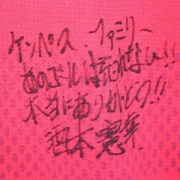 ケンペス ファミリー
あのゴールは忘れない!!
本当にありがとう!!
山本 憲